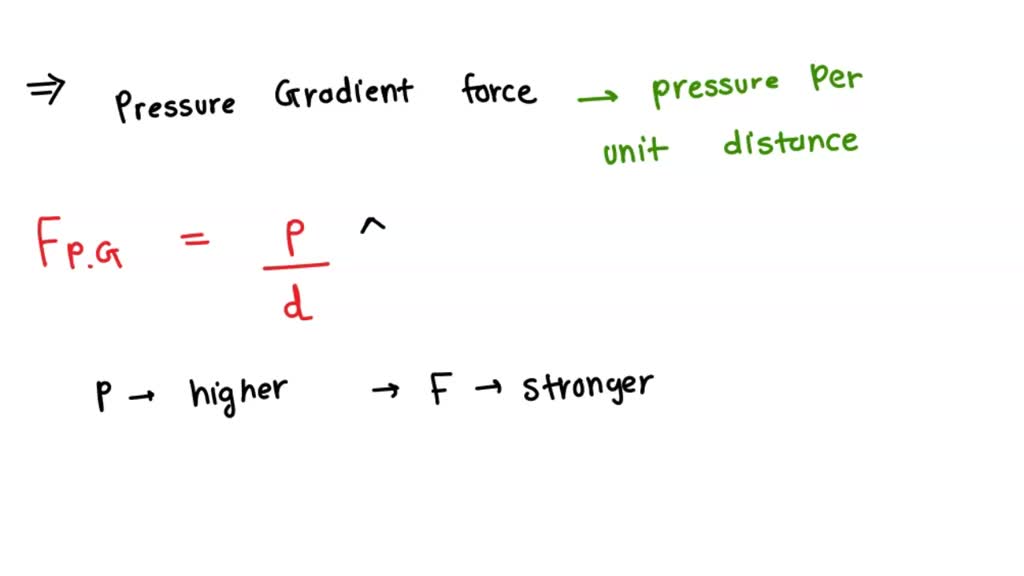 ⇒ Pressure Gradient force → pressure Per
unit distance
F P.G = P / d ^
P → higher → F → stronger